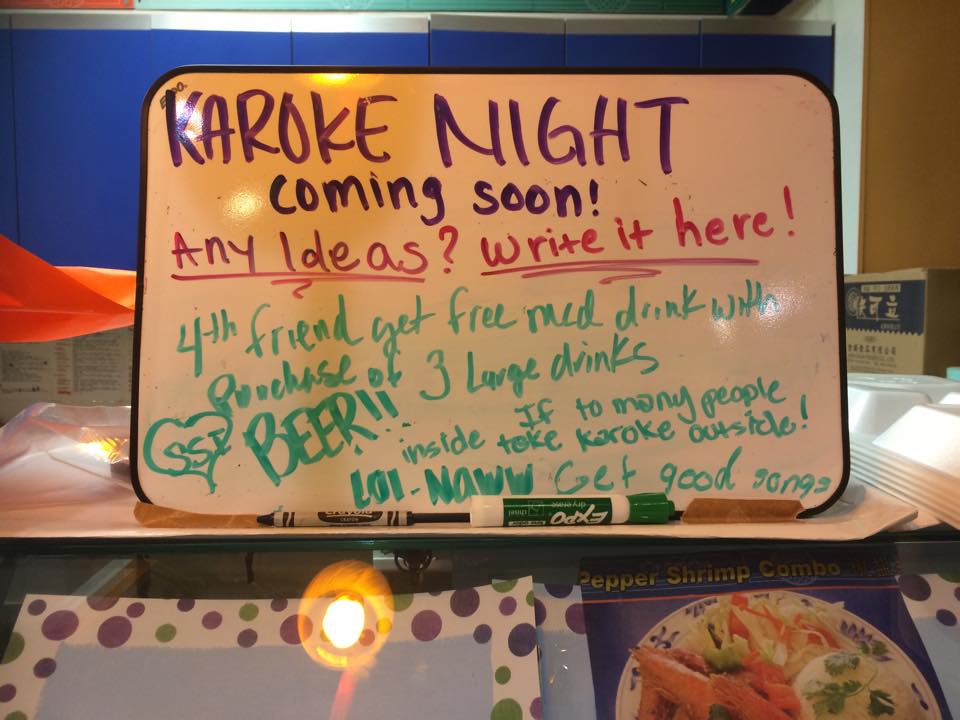 EXPO
KAROKE NIGHT
coming soon!
Any Ideas? Write it here!
4th friend get free med drink with
purchase of 3 Large drinks
SSF BEER!!
If to many people
inside take karoke outside!
LOL-NAWW Get good songs
CRAYON
EXPO
dry erase
chisel
Pepper Shrimp Combo